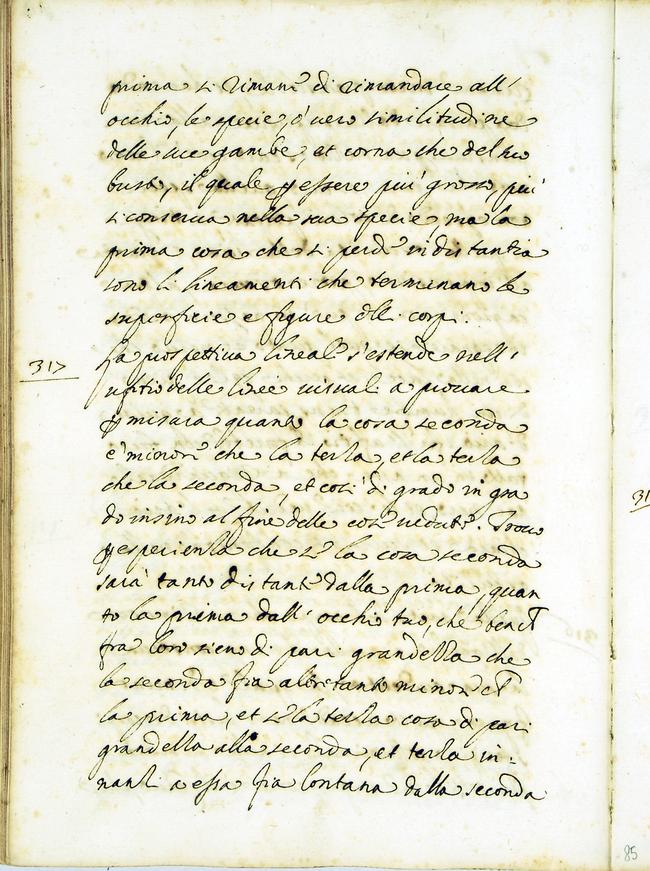 prima si riman' di rimandare all'
occhio, le specie, o' uero similitudine
delle sue gambe, et corna che del suo
busto, il quale p essere piu' grosso, piu'
si conserua nella sua specie, ma la
prima cosa che si perde in distantia
sono li lineamenti che terminano le
superficie e figure delli corpi.
317
La prospettiua lineal' s'estende nell'
ufitio delle linee uisuali a prouare
p misura quanto la cosa seconda
e' minor' che la terza, et la terza
che la seconda, et cosi' di grado in gra
do insino al fine delle cose uedute. Trouo
p esperienza che se la cosa seconda
sara' tanto distante dalla prima, quan
to la prima dall' occhio tuo, che bench'
fra loro sieno di pari grandezza che
la seconda fia altretanto minor' ch'
la prima, et se la terza cosa di pari
grandezza alla seconda, et terza in-
nanzi a essa fia lontana dalla seconda
31
85